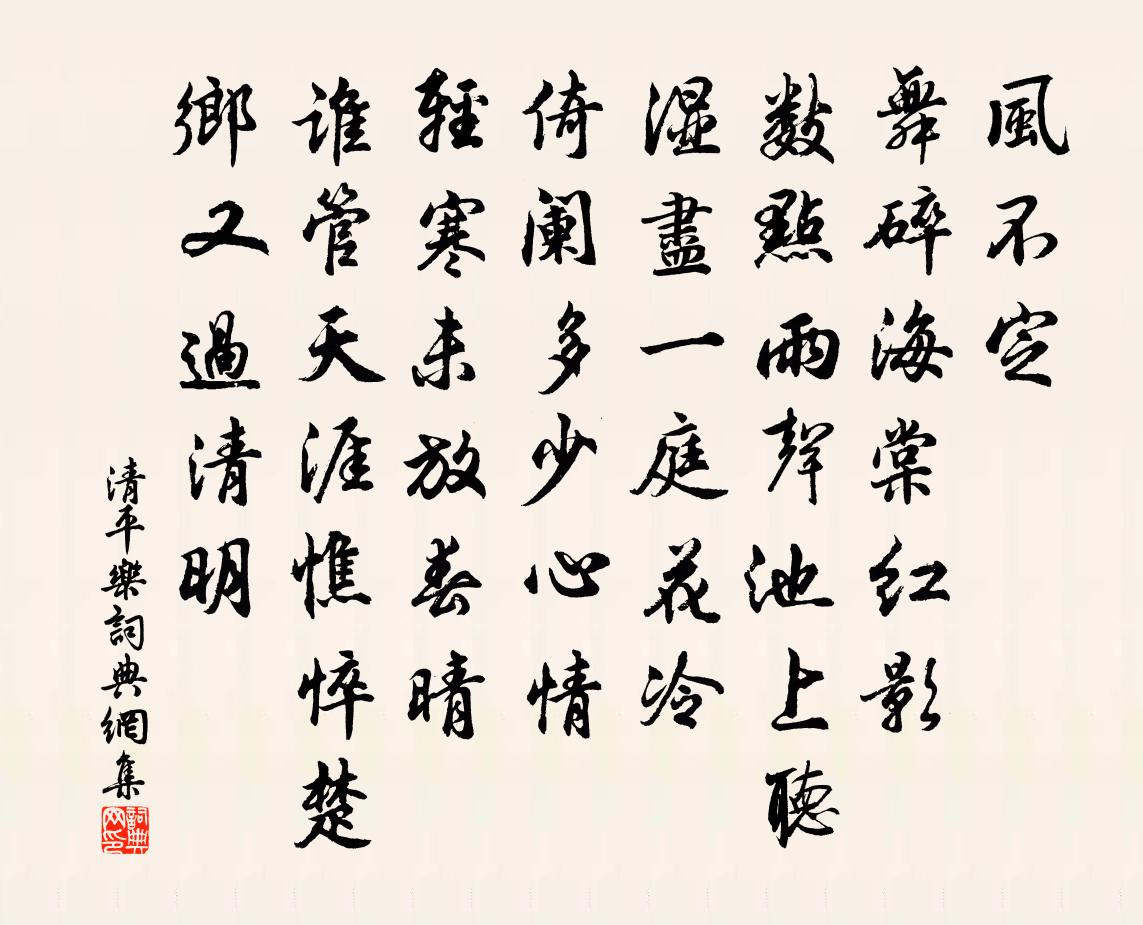 風不定
舞碎海棠紅影
數點雨聲池上聽
濕盡一庭花冷
倚阑多少心情
輕寒未放春晴
誰管天涯憔悴楚
鄉又過清明
清平樂詞典網集
詞典网印